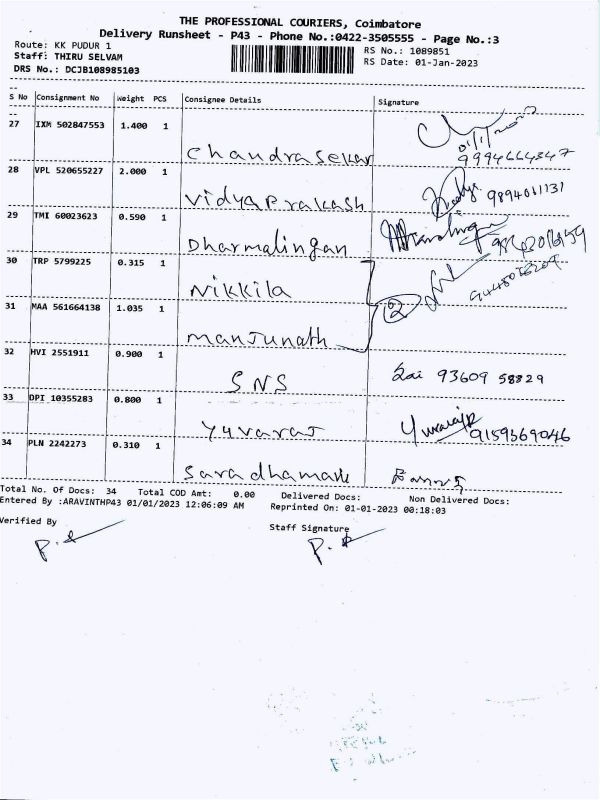 THE PROFESSIONAL COURIERS, Coimbatore
Delivery Runsheet - P43 - Phone No.:0422-3505555 - Page No.:3
Route: KK PUDUR 1
Staff: THIRU SELVAM
DRS No.: DCJB108985103
RS No.: 1089851
RS Date: 01-Jan-2023
S No Consignment No Weight PCS Consignee Details Signature
27 IXM 502847553 1.400 1
Chandrasekar 9994664347
28 VPL 520655227 2.000 1
Vidyaprakash 9894061131
29 TMI 60023623 0.590 1
Dharmalingan
30 TRP 5799225 0.315 1
Nikkila
31 MAA 561664138 1.035 1 2
Manjunath
32 HVI 2551911 0.900 1
SNS Sai 93609 58829
33 DPI 10355283 0.800 1
Yuvaraj Yuvaraj 9159369046
34 PLN 2242273 0.310 1
Saradhamani
Total No. Of Docs: 34 Total COD Amt: 0.00 Delivered Docs: Non Delivered Docs:
Entered By :ARAVINTHP43 01/01/2023 12:06:09 AM Reprinted On: 01-01-2023 00:18:03
Verified By Staff Signature